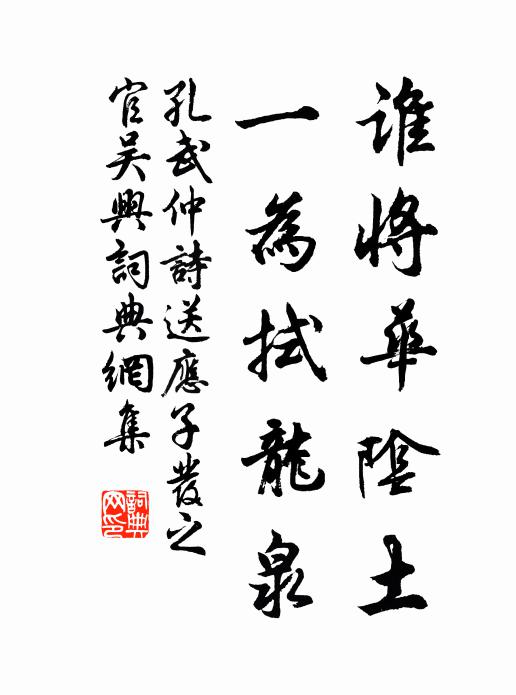 誰將華陰土
一為拭龍泉
孔武仲詩送應子發之
官吳興詞典網集
詞典网印